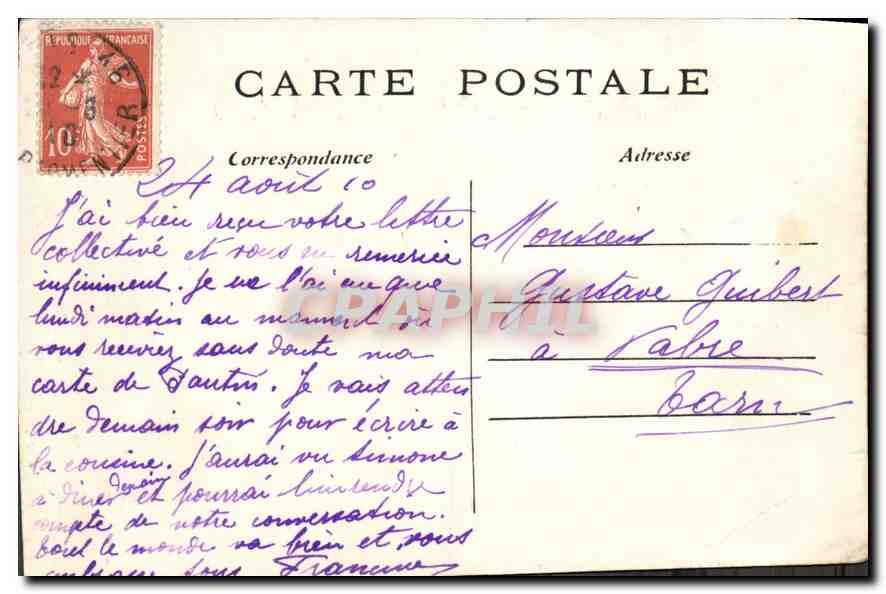 RÉPUBLIQUE FRANÇAISE
10
POSTES
CARTE POSTALE
Correspondance
Adresse
24 août 10
J'ai bien reçu votre lettre
collective et vous en remercie
infiniment. Je ne l'ai eu que
lundi matin au moment où
vous receviez sans doute ma
carte de Pantin. Je vais atten
dre demain soir pour écrire à
la cousine. J'aurai vu Simone
à diner demain et pourrai lui rendre
compte de notre conversation.
tout le monde va bien et vous
Monsieur
Gustave Guibert
à Vabre
Tarn
CPAPHIL